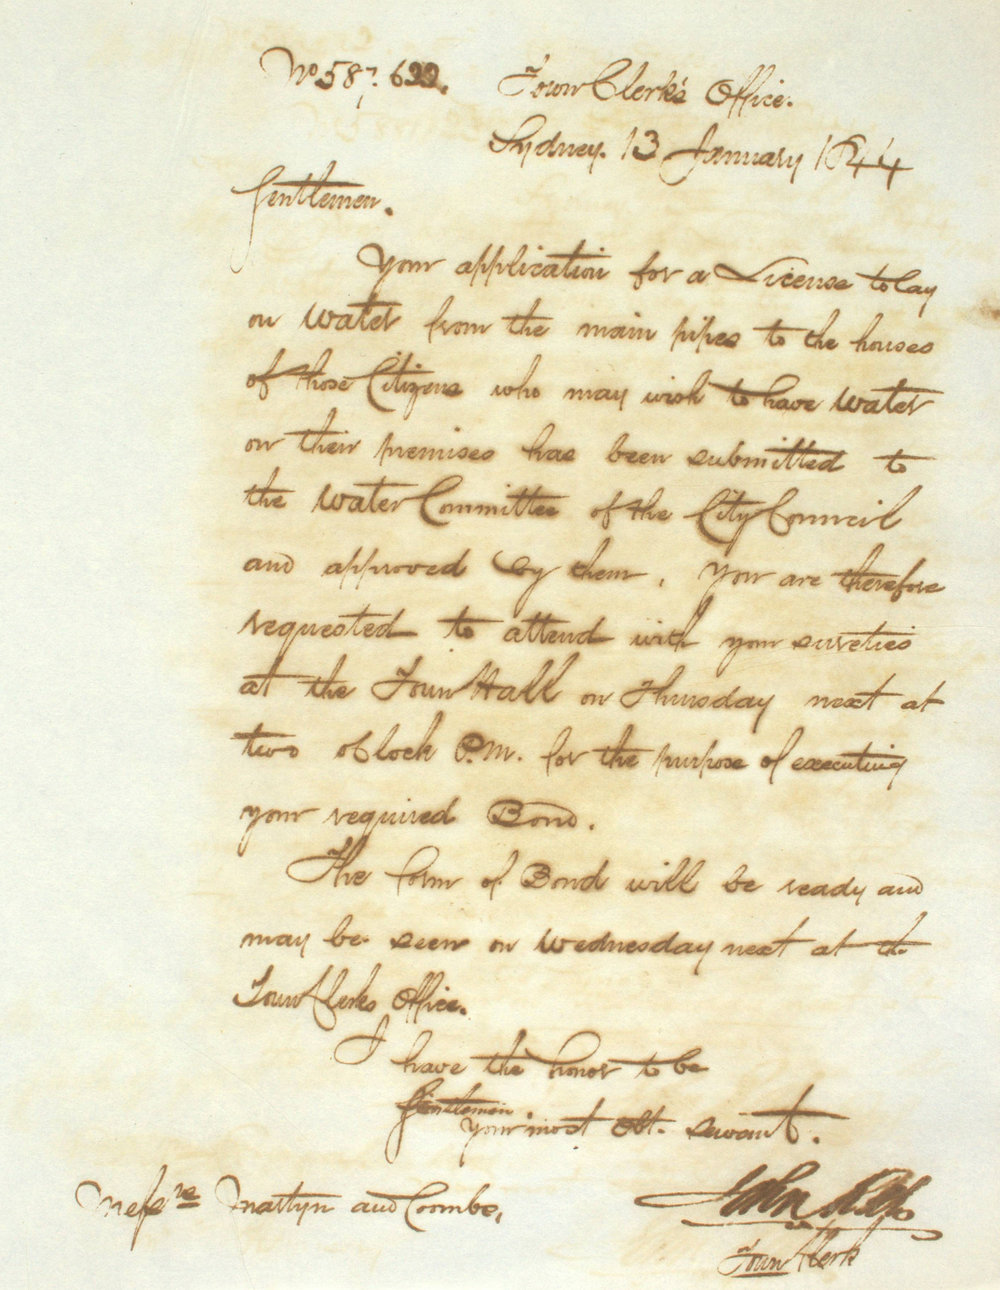 No 587. 622. Town Clerk's Office.
Sydney. 13 January 1844
Gentlemen.
Your application for a License to lay
on Water from the main pipes to the houses
of those Citizens who may wish to have Water
on their premises has been submitted to
the Water Committee of the City Council
and approved by them. You are therefore
requested to attend with your sureties
at the Town Hall on Thursday next at
two oClock P.M. for the purpose of executing
your required Bond.
The form of Bond will be ready and
may be seen on Wednesday next at the
Town Clerks Office.
I have the honor to be
Gentlemen
Your most Obt. servant.
John
Messrs Martyn and Coombe,
Town Clerk